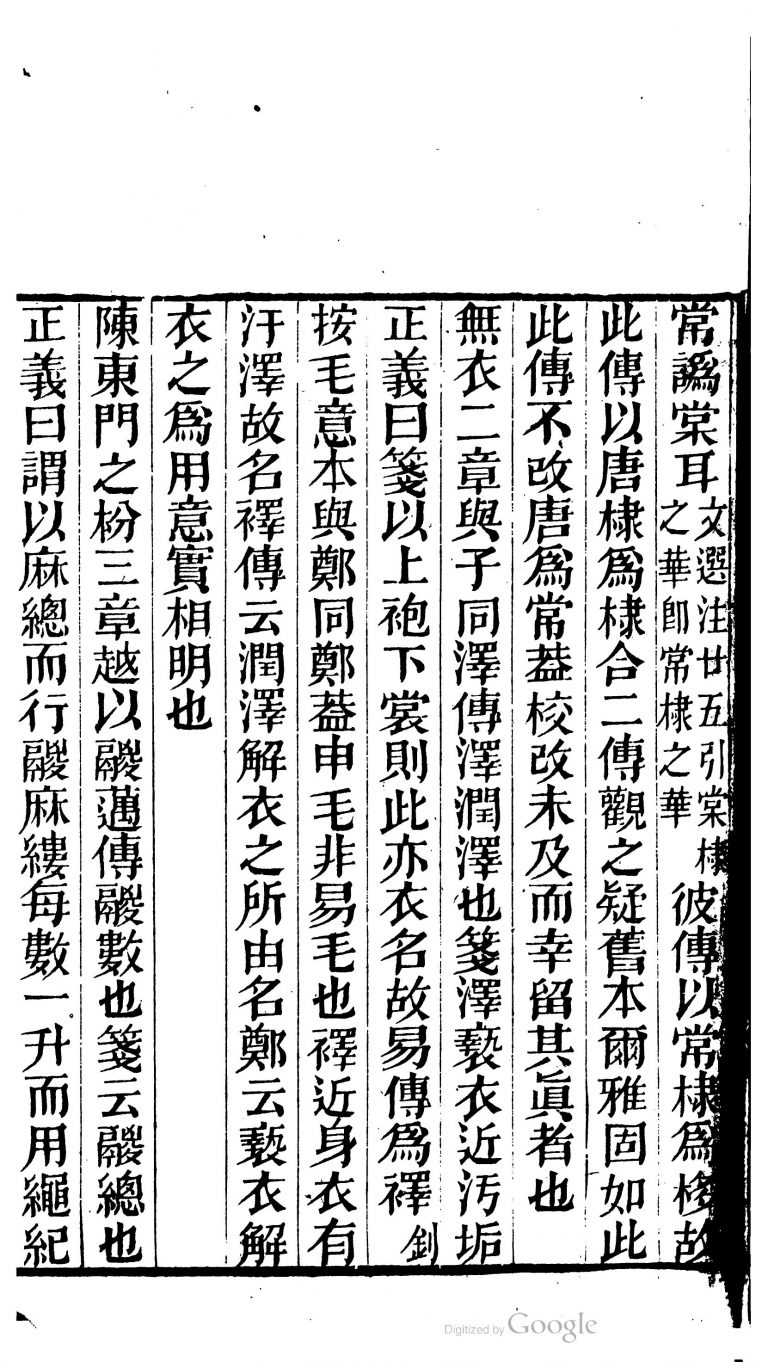 常譌棠耳文選注廿五引棠棣之華卽常棣之華彼傳以常棣爲栘故
此傳以唐棣爲棣合二傳觀之疑舊本爾雅固如此
此傳不改唐爲常葢校改未及而幸留其眞者也
無衣二章與子同澤傳澤潤澤也箋澤褻衣近汚垢
正義曰箋以上袍下裳則此亦衣名故易傳爲襗釗
按毛意本與鄭同鄭葢申毛非易毛也襗近身衣有
汗澤故名襗傳云潤澤解衣之所由名鄭云褻衣解
衣之爲用意實相明也
陳東門之枌三章越以鬷邁傳鬷數也箋云鬷總也
正義曰謂以麻總而行鬷麻縷每數一升而用繩紀
Digitized by Google